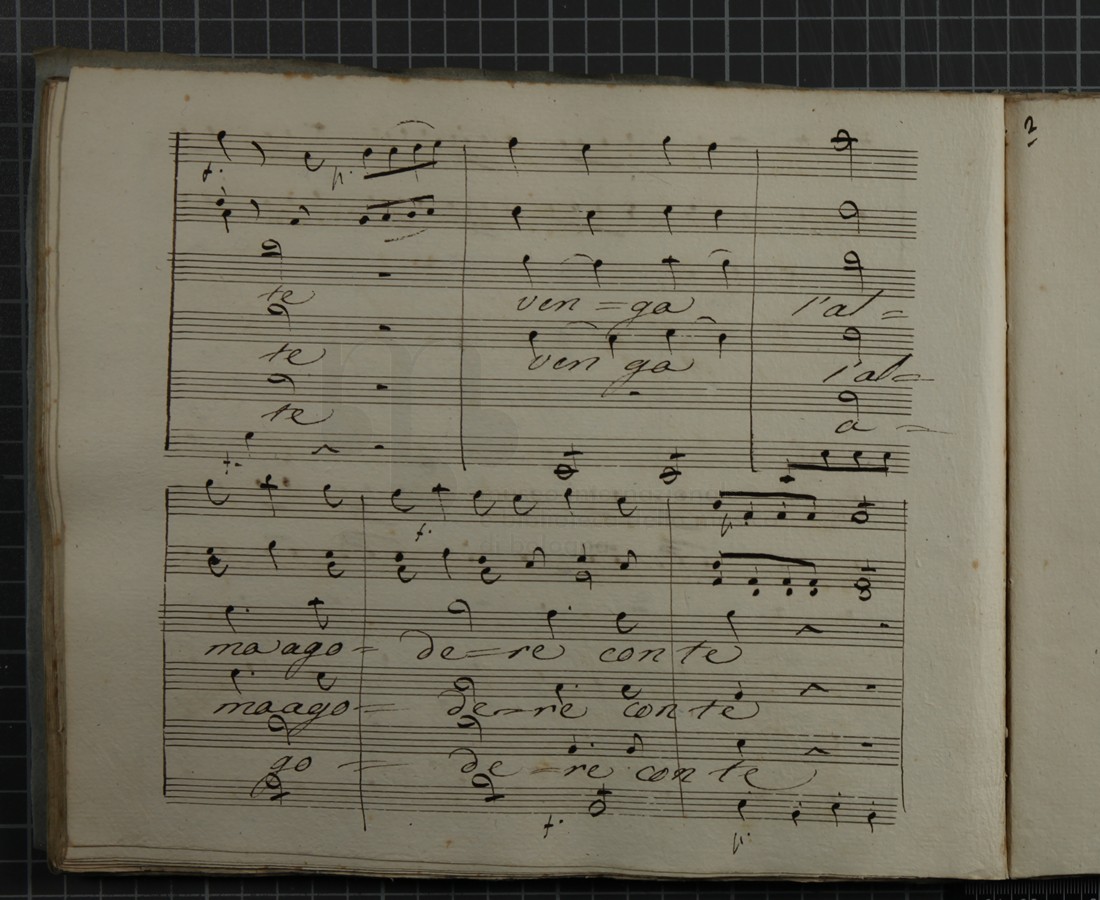 2
f. p.
te ven = ga l'al =
te ven ga l'al =
te a =
f.
f. p.
ma a go = de = re con te
ma a go = de = re con te
go = de = re con te
f. p.